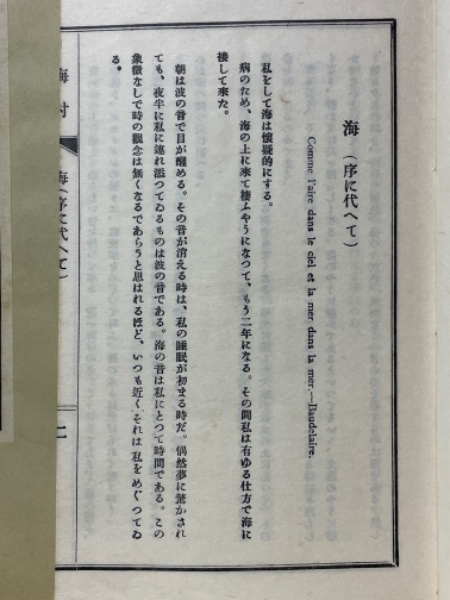 海 (序に代へて)
Comme l'aire dans le ciel et la mer dans la mer.—Baudelaire.
私をして海は懐疑的にする。
病のため、海の上に來て棲ふやうになつて、もう二年になる。その間私は有ゆる仕方で海に
接して來た。
朝は波の音で目が醒める。その音が消える時は、私の睡眠が初まる時だ。偶然夢に驚かされ
ても、夜半に私に連れ添つてゐるものは波の音である。海の音は私にとつて時間である。この
象徴なしで時の觀念は無くなるであらうと思はれるほど、いつも近くそれは私をめぐつてゐ
る。
海村
海(序に代へて)